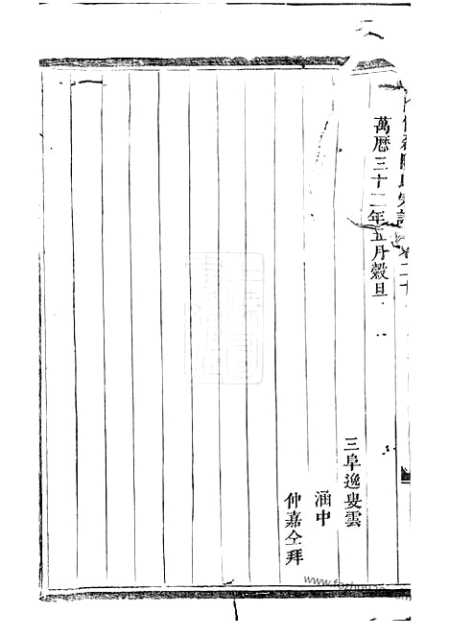 萬曆三十二年五月穀旦
三阜逸叟雲
涵中
仲嘉仝拜